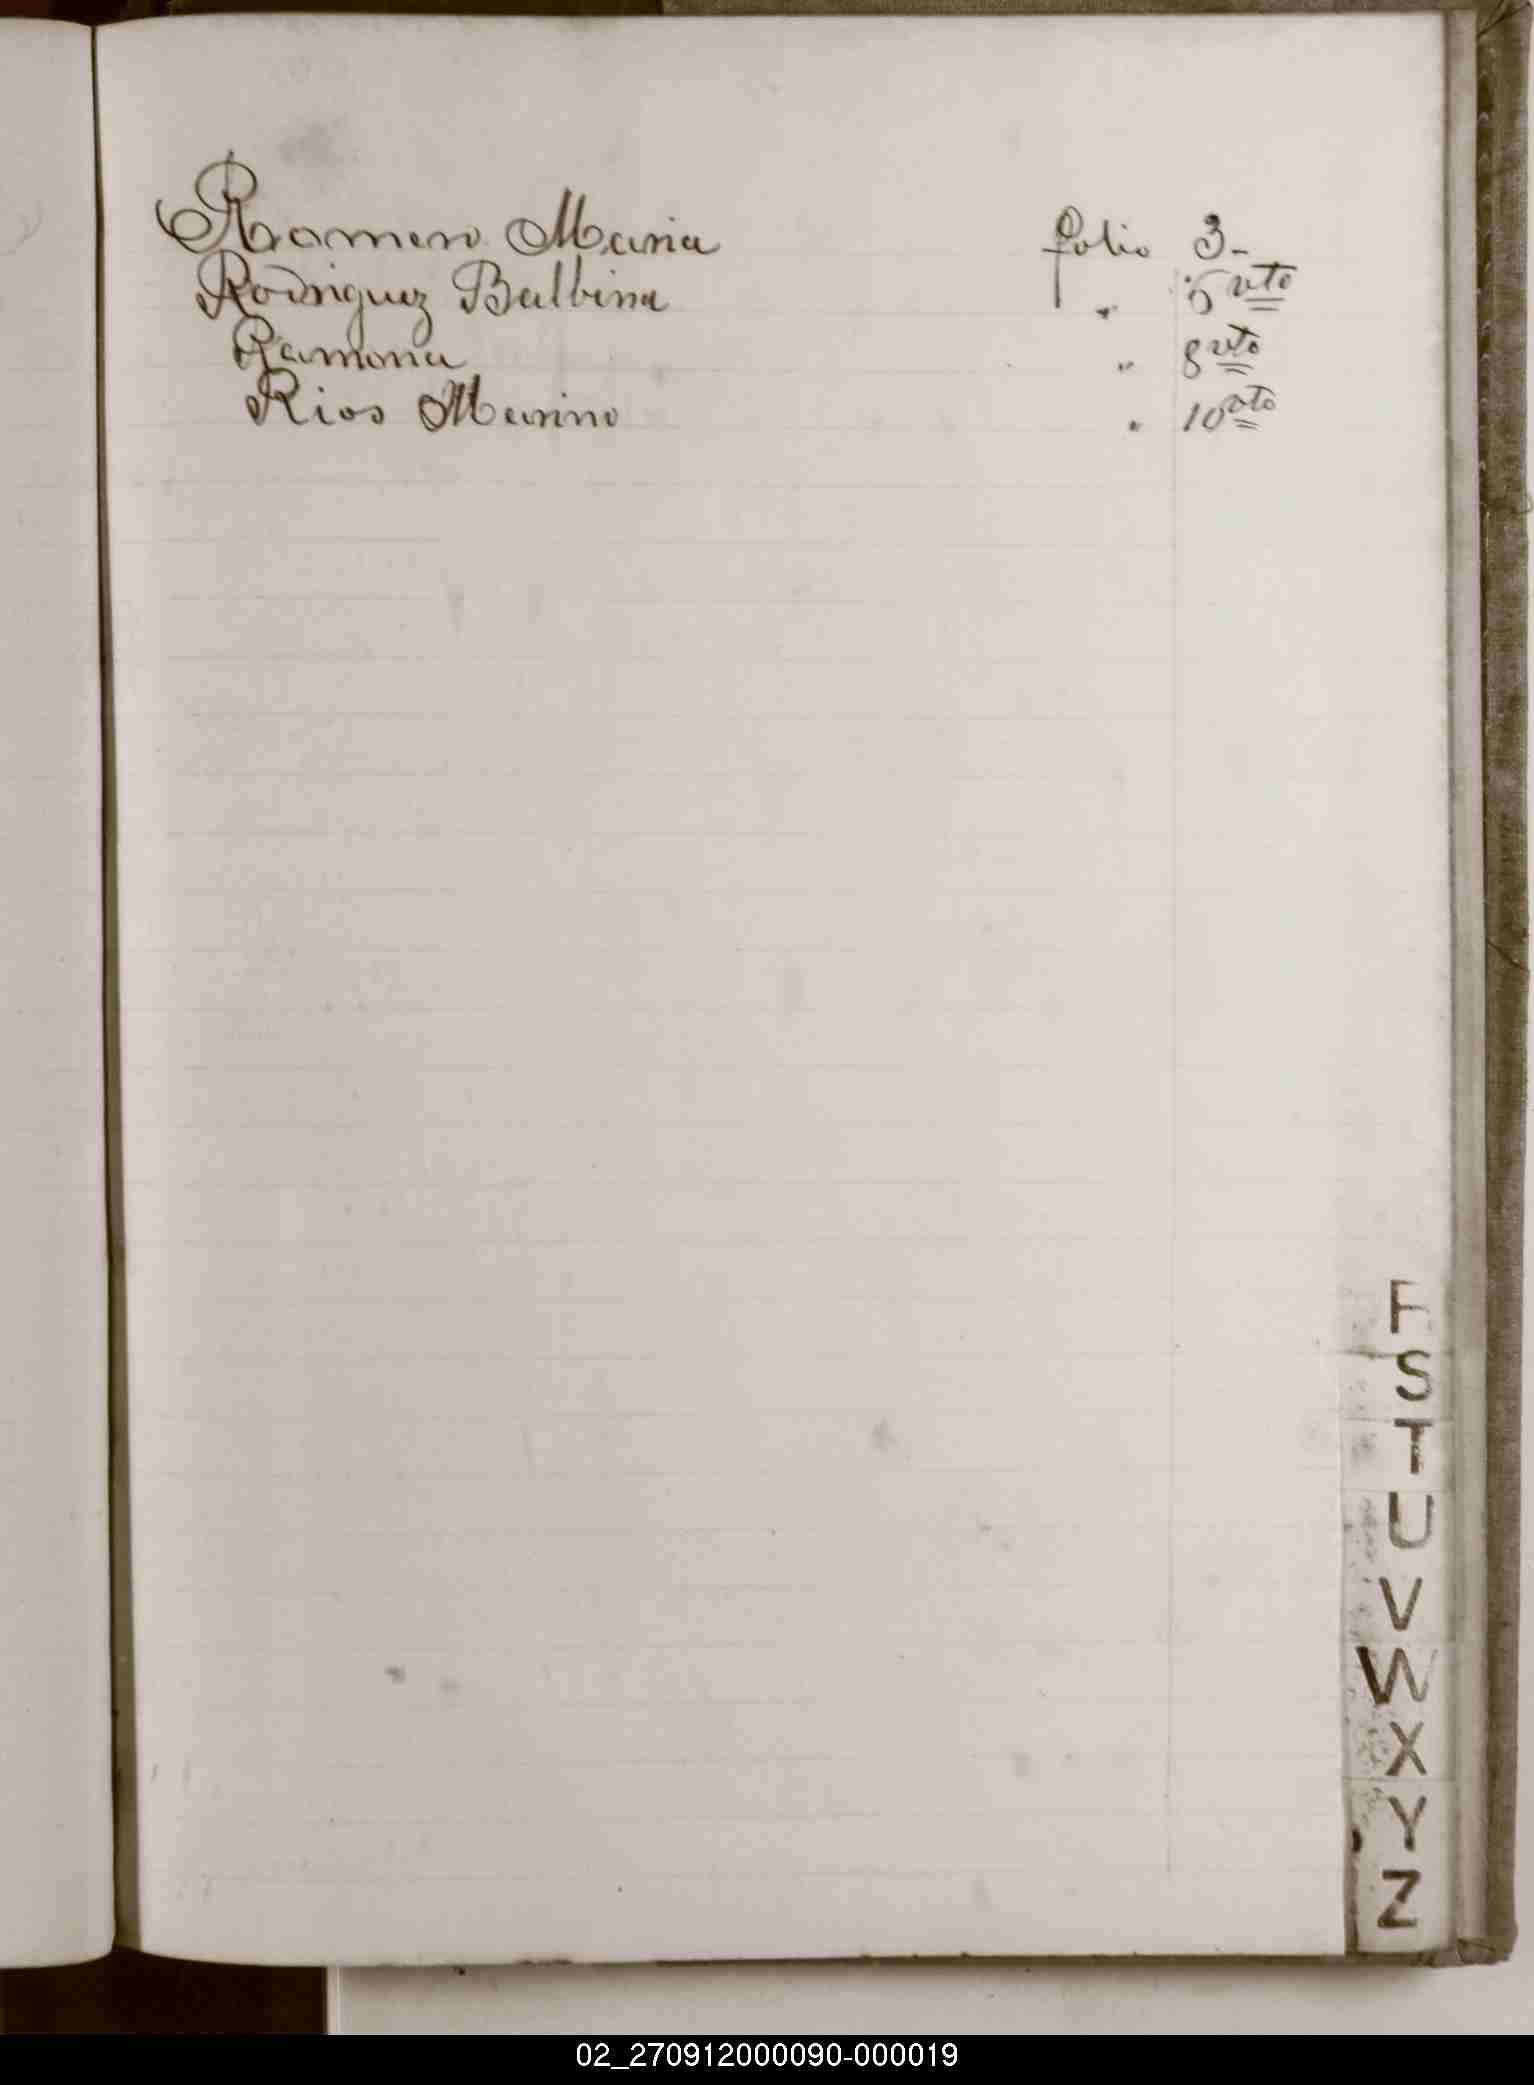 Romero Maria folio 3-
Rodriguez Balbina " 6 vto
Ramona " 8 vto
Rios Marino " 10 vto
R
S
T
U
V
W
X
Y
Z
02_270912000090-000019